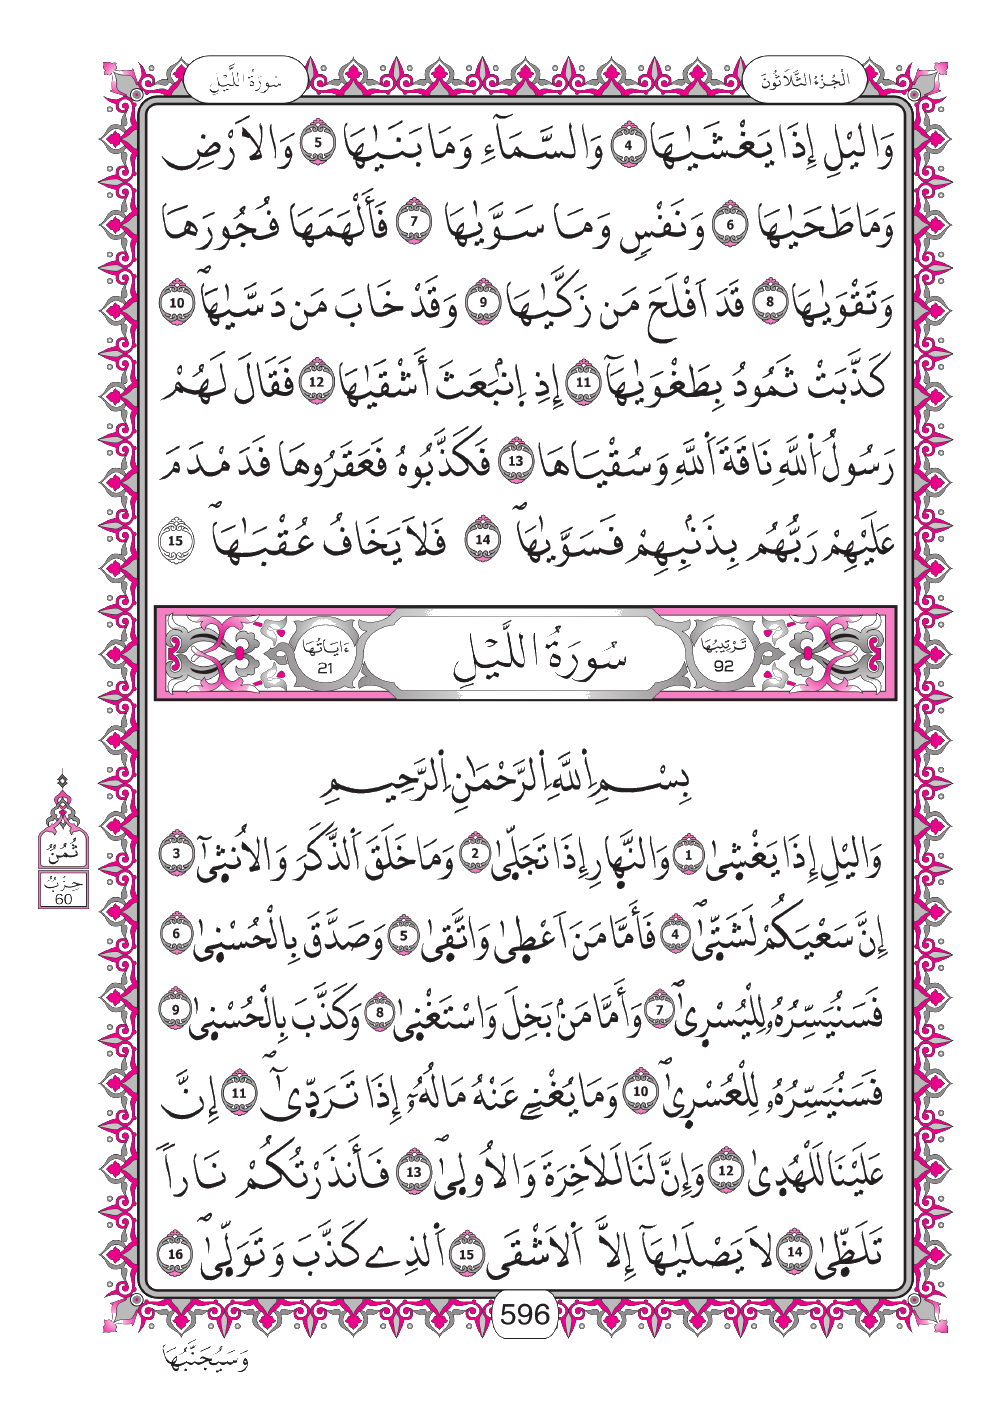 سُورَةُ اللَّيْلِ
الْجُزْءُ الثَّلَاثُونَ
وَاليْلِ إِذَا يَغْشَيٰهَا 4 وَالسَّمَآءِ وَمَا بَنَيٰهَا 5 وَالَارْضِ
وَمَا طَحَيٰهَا 6 وَنَفْسٖ وَمَا سَوَّيٰهَا 7 فَأَلْهَمَهَا فُجُورَهَا
وَتَقْوَيٰهَا 8 قَدَ اَفْلَحَ مَن زَكَّيٰهَا 9 وَقَدْ خَابَ مَن دَسَّيٰهَا 10
كَذَّبَتْ ثَمُودُ بِطَغْوَيٰهَآ 11 إِذِ اِنۢبَعَثَ أَشْقَيٰهَا 12 فَقَالَ لَهُمْ
رَسُولُ اُللَّهِ نَاقَةَ اَللَّهِ وَسُقْيَاهَا 13 فَكَذَّبُوهُ فَعَقَرُوهَا فَدَمْدَمَ
عَلَيْهِمْ رَبُّهُم بِذَنۢبِهِمْ فَسَوَّيٰهَا 14 فَلَا يَخَافُ عُقْبَٰهَا 15
تَرْتِيبُهَا 92
سُورَةُ اللَّيْلِ
ءَايَاتُهَا 21
بِسْمِ اِللَّهِ اِلرَّحْمَٰنِ اِلرَّحِيمِ
وَاليْلِ إِذَا يَغْشِىٰ 1 وَالنَّهِارِ إِذَا تَجَلِّىٰ 2 وَمَا خَلَقَ اَلذَّكَرَ وَالُانثِىٰٓ 3
إِنَّ سَعْيَكُمْ لَشَتِّىٰ 4 فَأَمَّا مَنَ اَعْطِىٰ وَاتَّقِىٰ 5 وَصَدَّقَ بِالْحُسْنِىٰ 6
فَسَنُيَسِّرُهُۥ لِلْيُسْرِىٰ 7 وَأَمَّا مَنۢ بَخِلَ وَاسْتَغْنِىٰ 8 وَكَذَّبَ بِالْحُسْنِىٰ 9
فَسَنُيَسِّرُهُۥ لِلْعُسْرِىٰ 10 وَمَا يُغْنِے عَنْهُ مَالُهُۥٓ إِذَا تَرَدِّىٰٓ 11 إِنَّ
عَلَيْنَا لَلْهُدِىٰ 12 وَإِنَّ لَنَا لَلَاخِرَةَ وَالُاولِىٰ 13 فَأَنذَرْتُكُمْ نَاراً
تَلَظِّىٰ 14 لَا يَصْلَيٰهَآ إِلَّا اَلَاشْقَى 15 اَلذِے كَذَّبَ وَتَوَلِّىٰ 16
ثُمُنٌ
حِزْبُ
60
596
وَسَيُجَنَّبُهَا